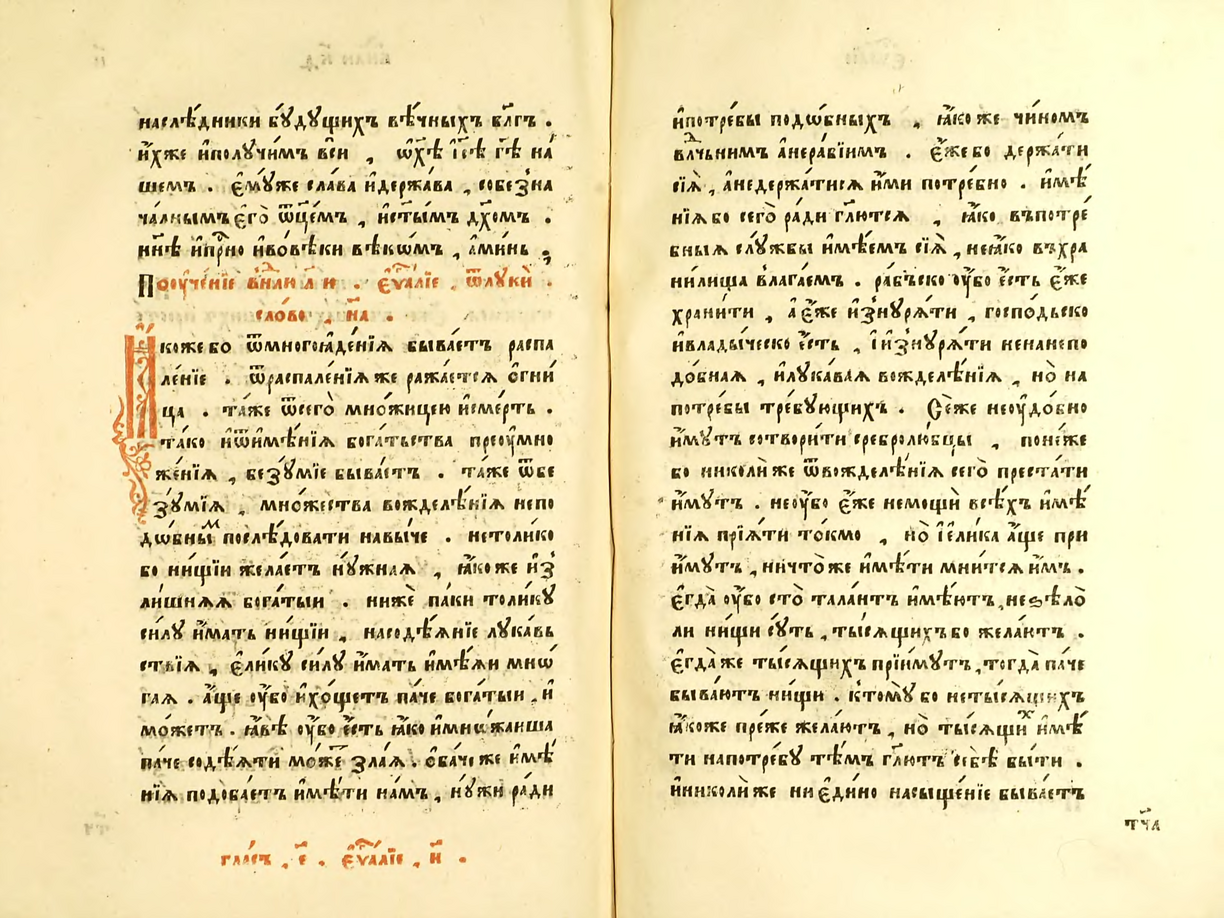 наслѣ́дники бꙋ́дꙋщихъ вѣ́чныхъ бл҃гъ .
и҆́хже и҆полꙋчи́мъ вси , ѡ҆х҃ѣ і҆с҃ѣ гд҃ѣ на́
шемъ . є҆мꙋ́же сла́ва и҆держа́ва , собезна
ча́лнымъ є҆го̀ ѿц҃е́мъ , и҆ст҃ы́мъ дх҃омъ .
нн҃ѣ и҆при́но и҆во́вѣки вѣкѡ́мъ , а҆ми́нь .
Поꙋче́нїе
сло́во , на .
ꙗ҆́
коже бо ѿмногоꙗде́нїѧ быва́етъ распа
ле́нїе . ѿраспале́нїѧ же ража́етсѧ ѻ҆гни́
ца . та́же ѿсего̀ мно́жицею и҆сме́рть .
та́ко и҆ѿи҆мѣ́нїѧ бога́тьства преоу҆мно
же́нїѧ , безꙋ́мїе быва́етъ . та́же ѿбе
зꙋ́мїѧ , мно́жества вожделѣ́нїѧ непо
дѡ́бныⷨ послѣ́довати навы́че . нетоли́ко
бо ни́щїи жела́етъ нꙋ́жнаѧ , ꙗ҆́коже и҆з̾
ли́шнѧѧ бога́тыи . нижѐ па́ки толи́кꙋ
си́лꙋ и҆́мать ни́щїи , насодѣ́ѧнїе лꙋка́вь
ствїѧ , є҆ли́кꙋ си́лꙋ и҆́мать и҆мѣ́ѧи мнѡ́
гаѧ . а҆́ще оу҆́бо и҆хо́щетъ па́че бога́тыи , и҆
мо́жетъ . ꙗ҆́вѣ оу҆́бо є҆́сть ꙗ҆́ко и҆мно́жаиша
па́че содѣ́ѧти мо́же ѕла́ѧ . ѻ҆ба́че же и҆мѣ́
нїѧ подоба́етъ и҆мѣ́ти на́мъ , нꙋ́жи ра́ди
гла́съ , є҃ . є҆ѵⷢ҇алїе , и҃ .
и҆потре́бы подо́бныхъ , ꙗ҆́коже чи́номъ
влⷣчьнимъ а҆нера́бїимъ . є҆́же бо держа́ти
сїѧ̀ , а҆недержа́тисѧ и҆́ми потре́бно . и҆мѣ́
нїѧ бо сего̀ ра́ди гл҃ютсѧ , ꙗ҆́ко въпотре́
бныѧ слꙋ́жбы и҆мѣ́емъ сїѧ̀ , неꙗ҆́ко въхра
ни́лища влага́емъ . ра́бъско оу҆́бо є҆́сть є҆́же
храни́ти , а҆ є҆́же и҆знꙋрѧ́ти , господьско
и҆влады́ческо є҆́сть , і҆изнꙋрѧ́ти ненанепо
до́бнаѧ , и҆лꙋка́ваѧ вожделѣ́нїѧ , но̀ на
потре́бы тре́бꙋющихъ . Се́же неоу҆до́бно
и҆́мꙋтъ сотвори́ти сребролю́бцы , поне́же
бо николи́же ѿвожделѣ́нїѧ сего̀ преста́ти
и҆́мꙋтъ . неоу҆́бо є҆́же немощѝ всѣ́хъ и҆мѣ́
нїѧ прїѧ́ти то́кмо , но̀ і҆ели́ка а҆́ще при
и҆́мꙋтъ , ничто́же и҆мѣ́ти мни́тсѧ и҆́мъ .
є҆гда̀ оу҆́бо сто̀ тала́нтъ и҆мѣ́ютъ , неѕѣло̀
ли ни́щи сꙋ́ть , ты́сѧщихъ бо жела́ютъ .
є҆гда́же ты́сѧщихъ прїи́мꙋтъ , тогда̀ па́че
быва́ютъ ни́щи . ктомꙋ̀ бо нетысѧ́щихъ
ꙗ҆́коже пре́же жела́ютъ , но̀ ты́сѧщиⷯ и҆мѣ́
ти напотре́бꙋ тѣ́мъ гл҃ютъ себѣ̀ бы́ти .
и҆николи́же ниє҆ди́но насыще́нїе быва́етъ
тч҃а